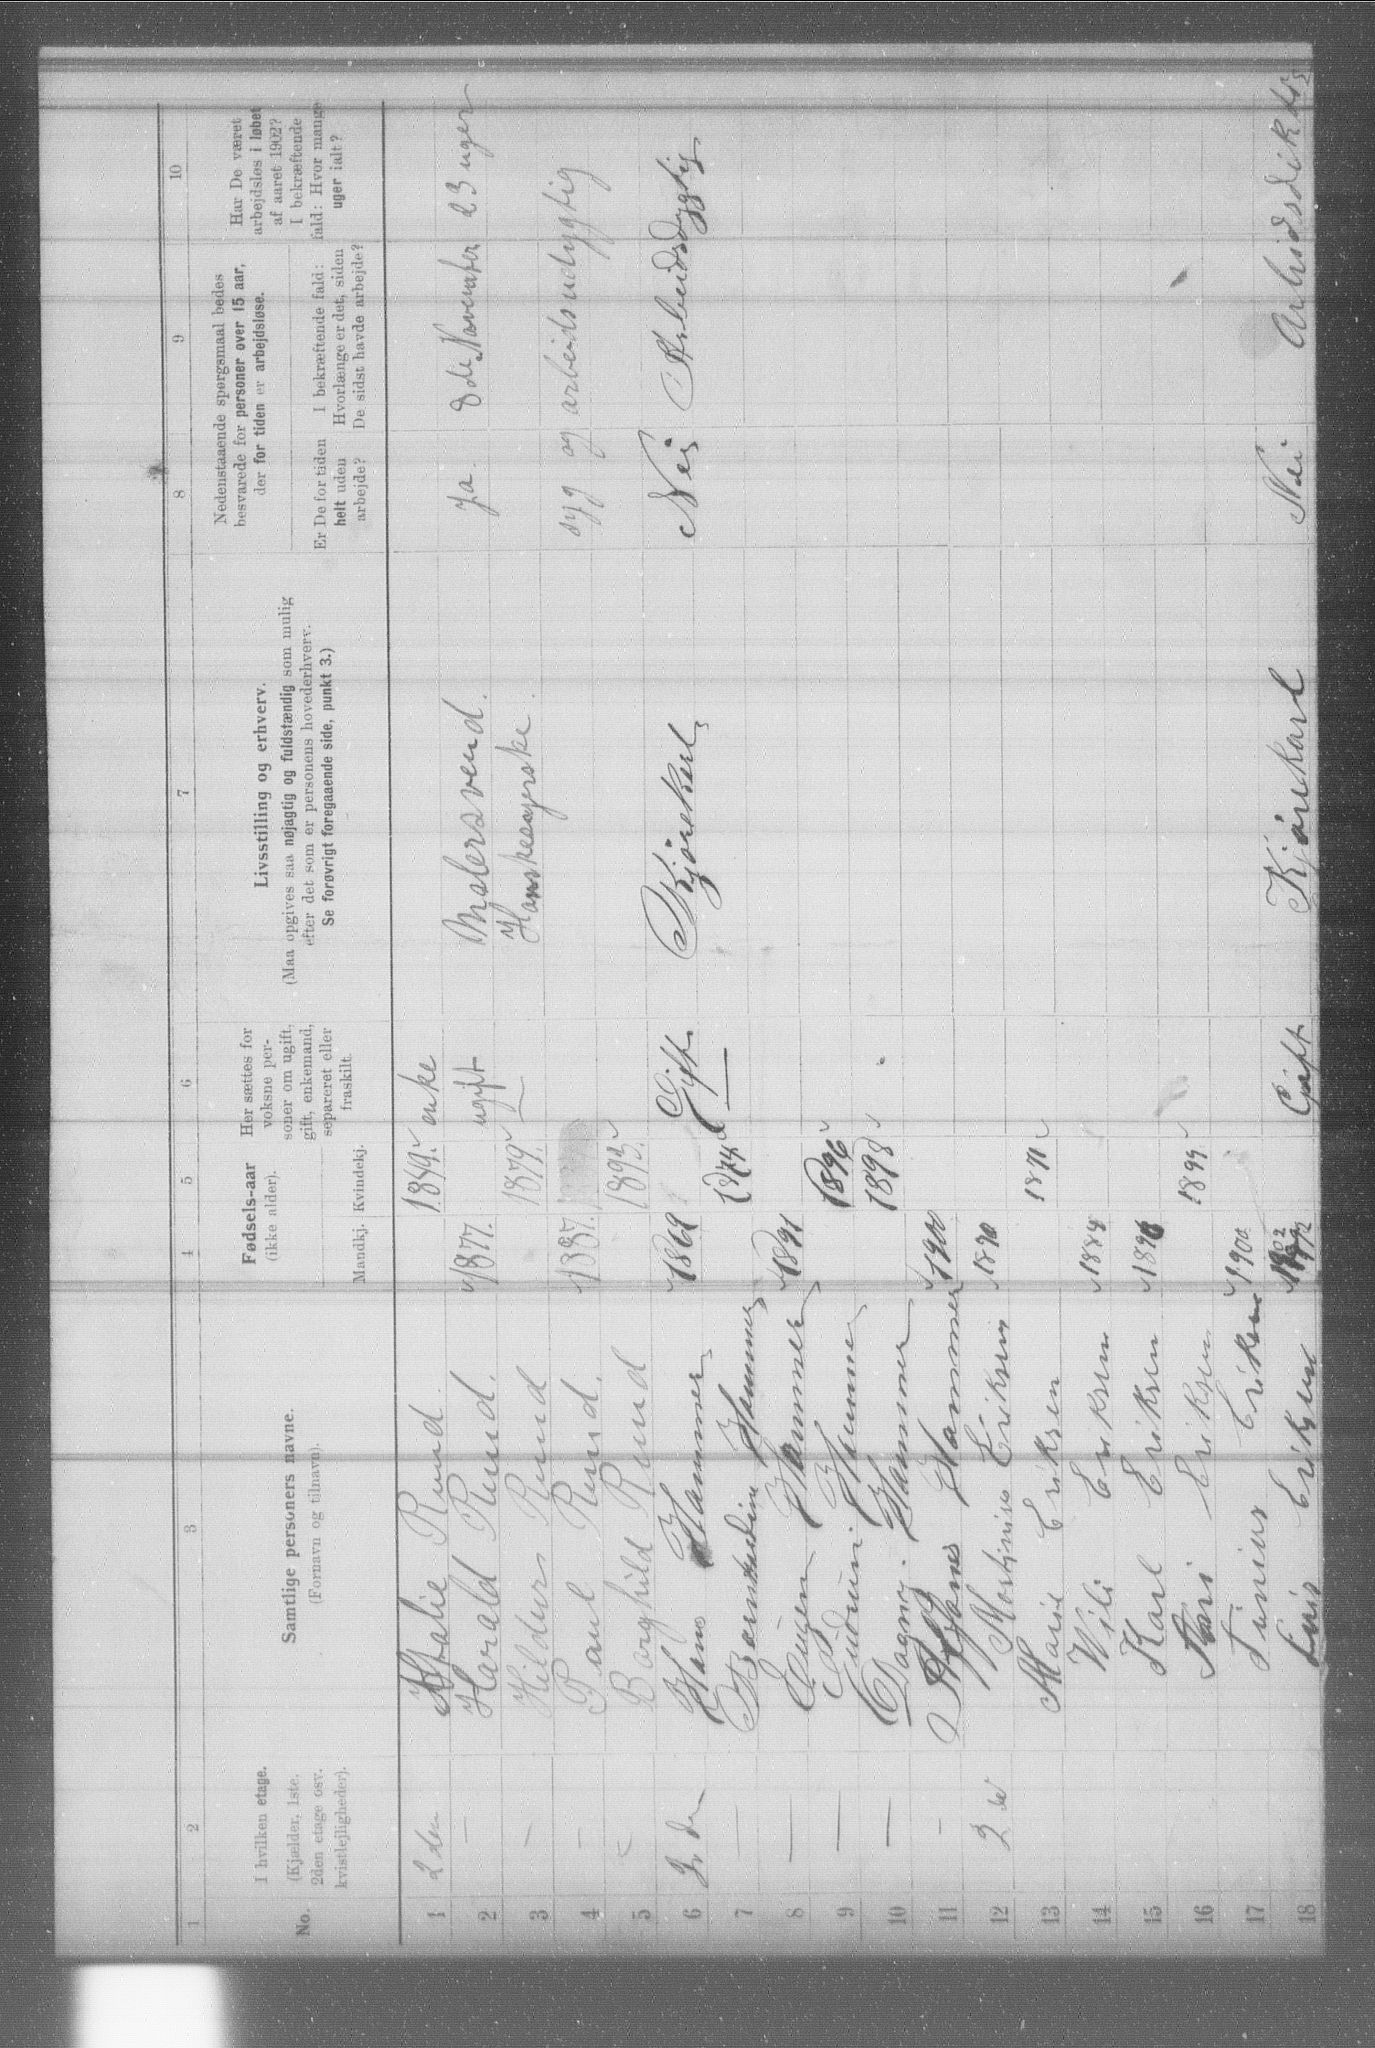 1 2 3 4 5 6 7 8 9 10
No.
I hvilken etage.
(Kjælder, 1ste.
2den etage osv.
kvistlejligheder).
Samtlige personers navne.
(Fornavn og tilnavn).
Fødsels-aar
(ikke alder).
Mandkj. Kvindekj.
Her sættes for
voksne per-
soner om ugift,
gift, enkemand,
separeret eller
fraskilt.
Livsstilling og erhverv.
(Maa opgives saa nøjagtig og fuldstændig som mulig
efter det som er personens hovederhverv.
Se forøvrigt foregaaende side, punkt 3.)
Nedenstaaende spørgsmaal bedes
besvarede for personer over 15 aar,
der for tiden er arbejdsløse.
Er De for tiden
helt uden
arbejde?
I bekræftende fald:
Hvorlænge er det, siden
De sidst havde arbejde?
Har De været
arbejdsløs i løbet
af aaret 1902?
I bekræftende
fald: Hvor mange
uger ialt?
1 2den Rund. 1849. enke
2 — Harald Rund. 1877. ugift Malersvend. Ja. 8de November 23 uger
3 — Hildur Rund 1879. — Hanskesyerske. syg og arbeidsudygtig
4 — Paul Rund. 1887.
5 — Borghild Rund 1893.
6 2den Hans Hammer 1869 Gift Kjørekarl Nei Arbeidsdygtig
7 — Hammer 1874 —
8 — Eugen Hammer 1891
9 — Gudrun Hammer 1896
10 — Dagny Hammer 1898
11 — Hammer 1900
12 2de Martinius Eriksen 1870
13 Marie Eriksen 1871
14 Vili Eriksen 1888
15 Karl Eriksen 1896
16 Eriksen 1899
17 Eriksen 1900
18 Eriksen Gift Kjørekarl Nei